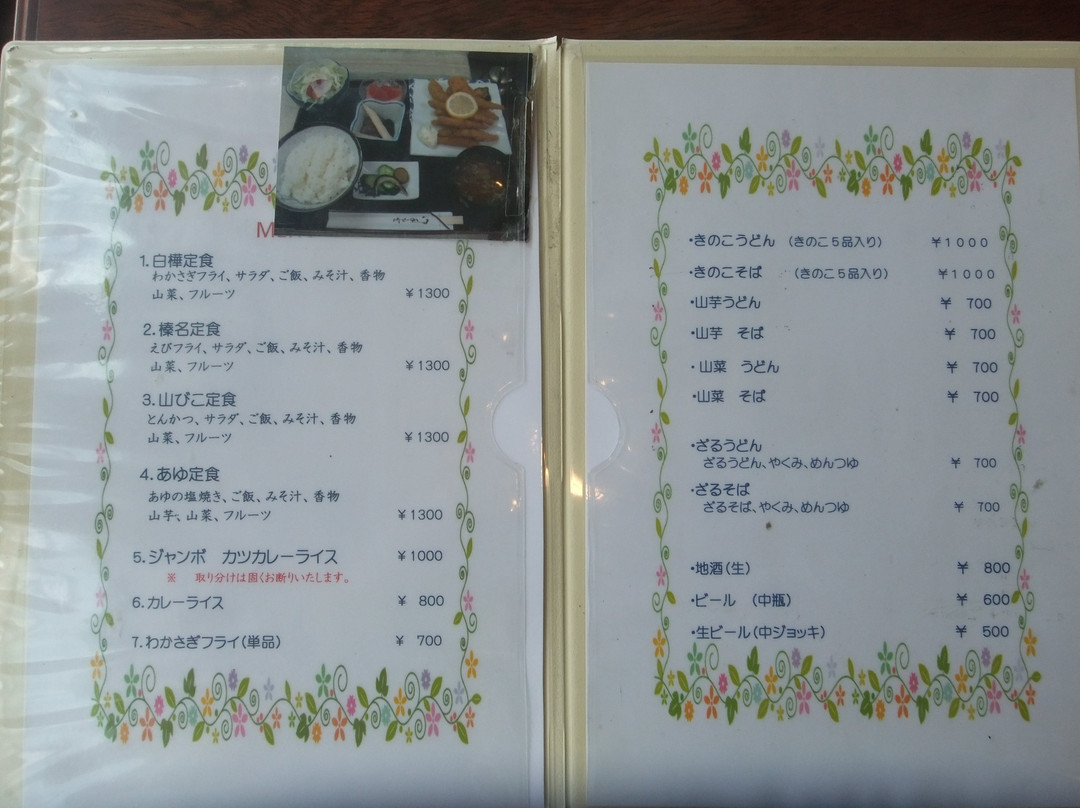 1.白樺定食
わかさぎフライ、サラダ、ご飯、みそ汁、香物
山菜、フルーツ ￥1300
2.榛名定食
えびフライ、サラダ、ご飯、みそ汁、香物
山菜、フルーツ ￥1300
3.山びこ定食
とんかつ、サラダ、ご飯、みそ汁、香物
山菜、フルーツ ￥1300
4.あゆ定食
あゆの塩焼き、ご飯、みそ汁、香物
山芋、山菜、フルーツ ￥1300
5.ジャンボ　カツカレーライス ￥1000
※　取り分けは固くお断りいたします。
6.カレーライス ￥ 800
7.わかさぎフライ(単品) ￥ 700
・きのこうどん （きのこ５品入り） ￥1000
・きのこそば （きのこ５品入り） ￥1000
・山芋うどん ￥ 700
・山芋　そば ￥ 700
・山菜　うどん ￥ 700
・山菜　そば ￥ 700
・ざるうどん
ざるうどん、やくみ、めんつゆ ￥ 700
・ざるそば
ざるそば、やくみ、めんつゆ ￥ 700
・地酒(生) ￥ 800
・ビール　(中瓶) ￥ 600
・生ビール(中ジョッキ) ￥ 500